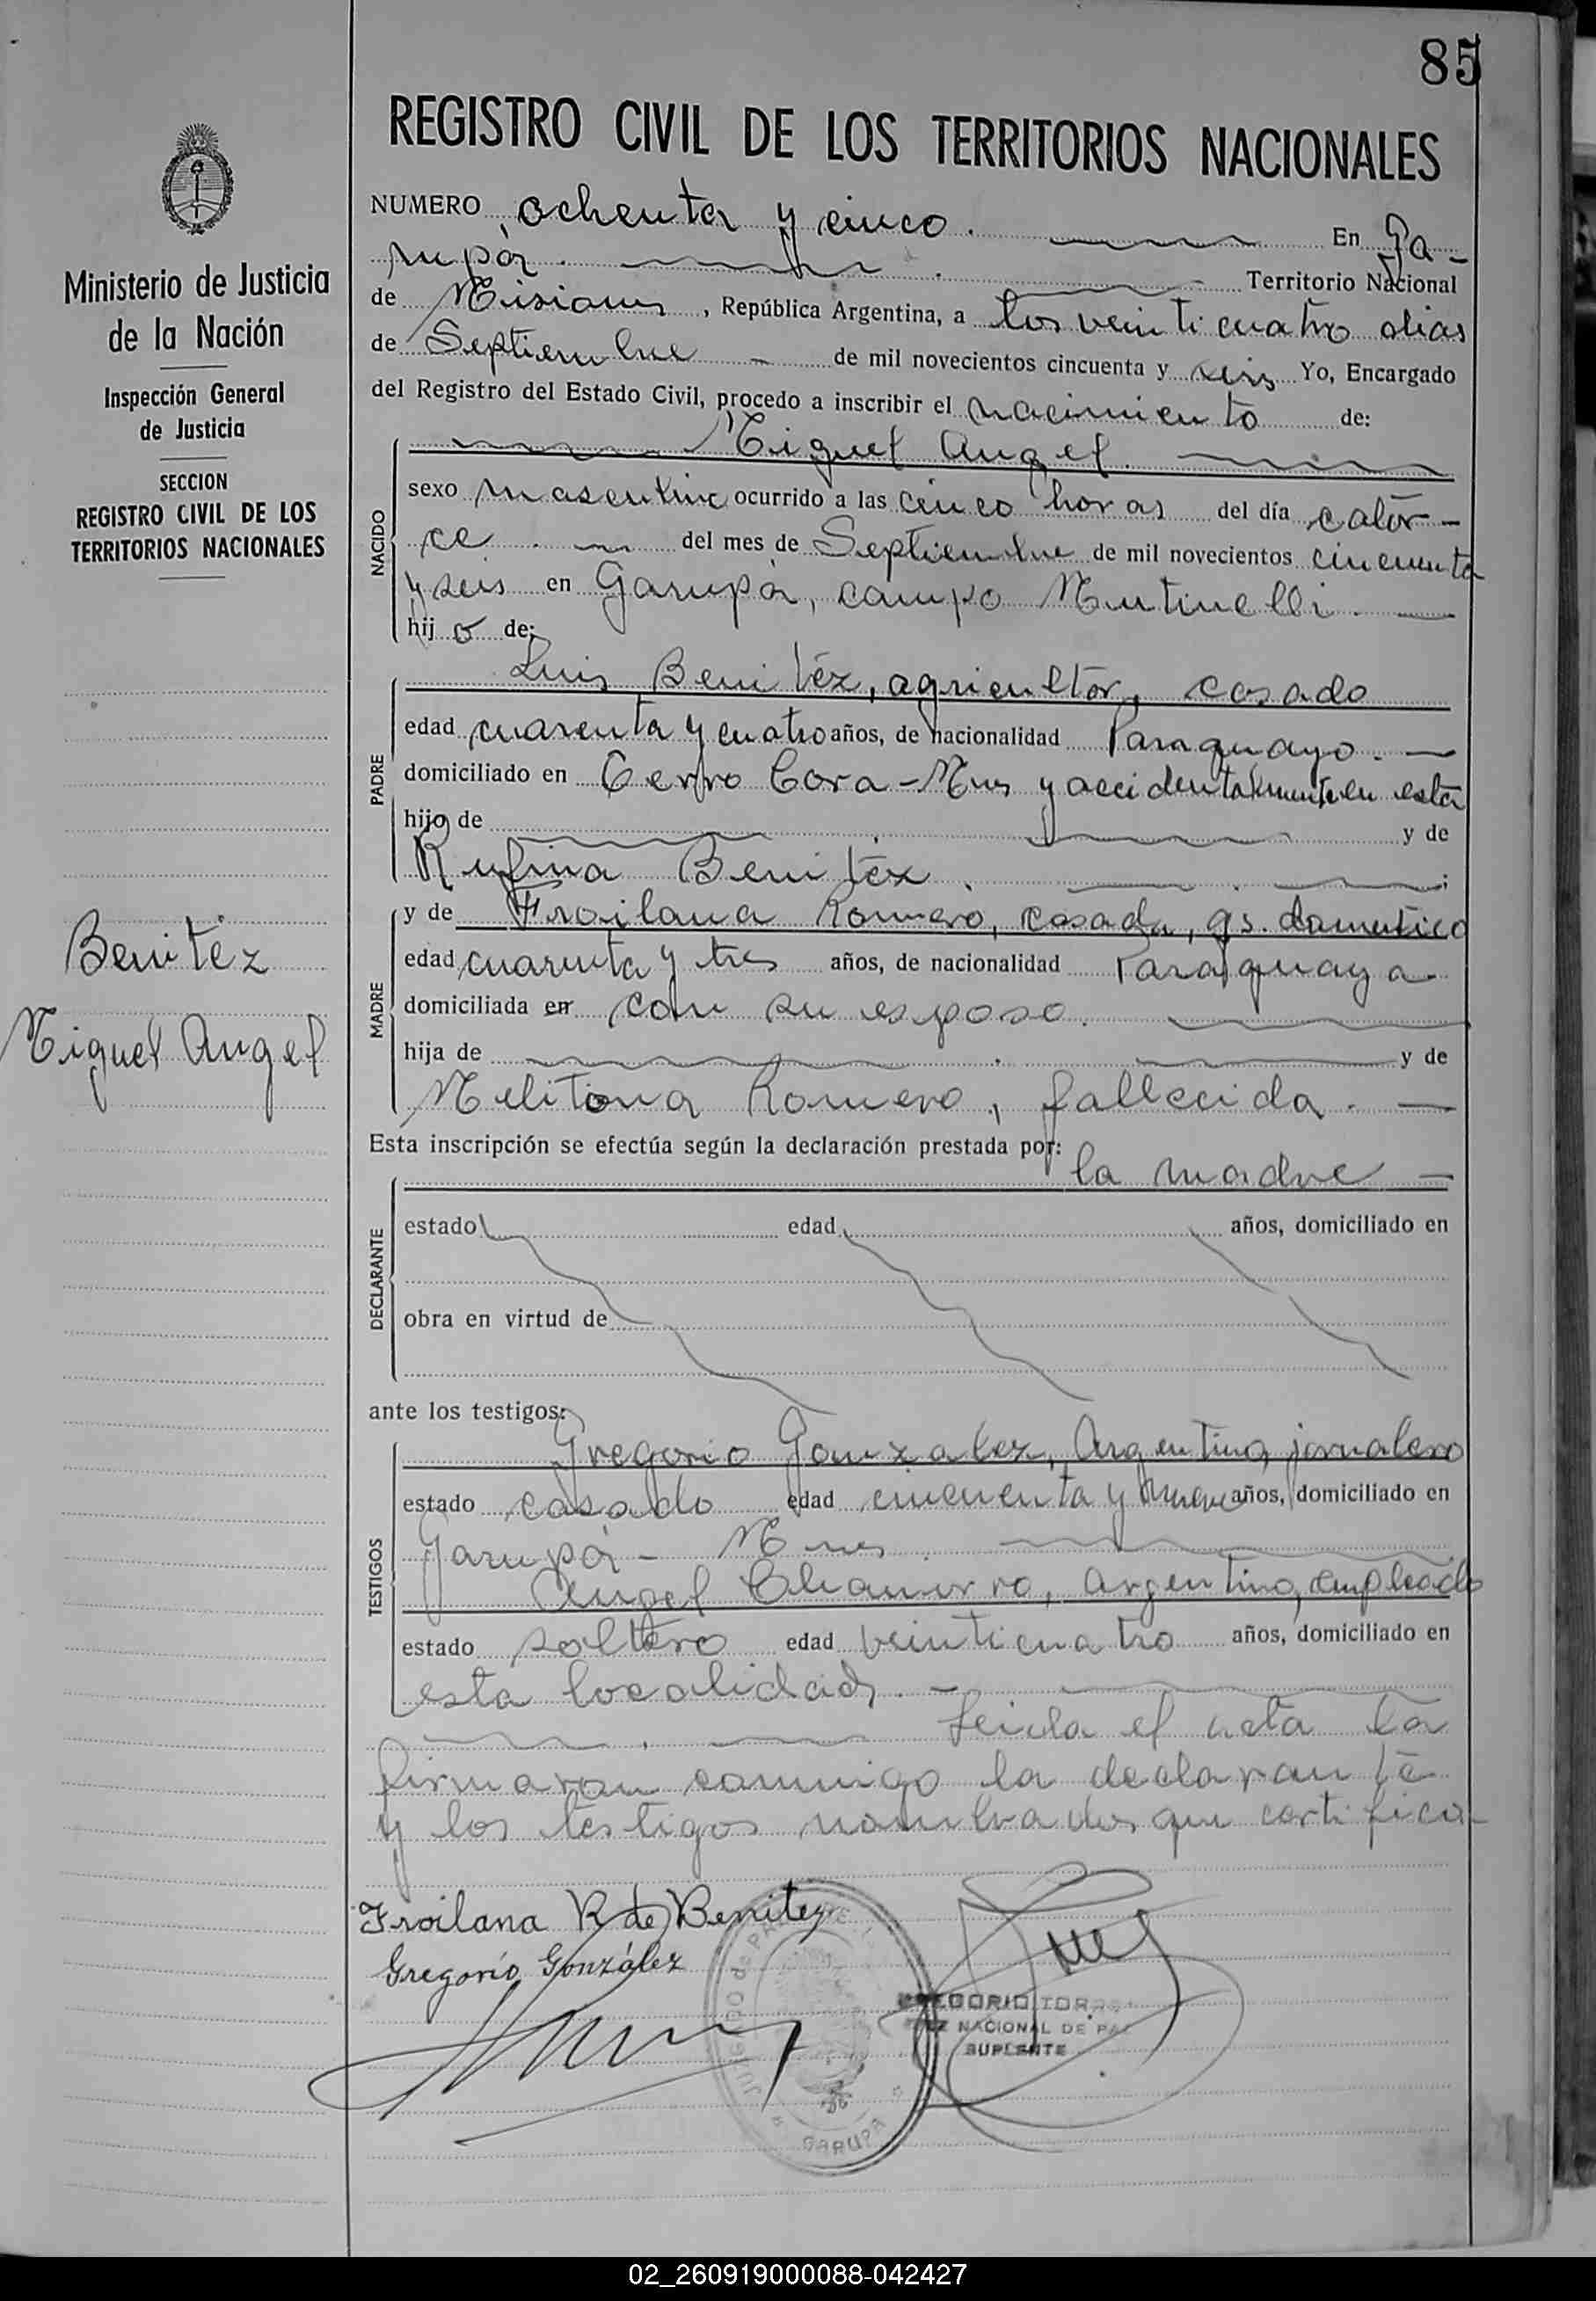 85
REGISTRO CIVIL DE LOS TERRITORIOS NACIONALES
Ministerio de Justicia
de la Nación
Inspección General
de Justicia
SECCION
REGISTRO CIVIL DE LOS
TERRITORIOS NACIONALES
Benitéz
Miguel Angel
NUMERO ochenta y cinco. En Ga-
rupá. Territorio Nacional
de Misiones, República Argentina, a los veinticuatro dias
de Septiembre de mil novecientos cincuenta y seis Yo, Encargado
del Registro del Estado Civil, procedo a inscribir el nacimiento de:
Miguel Angel.
NACIDO
sexo masculino ocurrido a las cinco horas del día cator-
ce del mes de Septiembre de mil novecientos cincuenta
y seis en Garupá, campo Mutinelli.
hijo de:
Luis Benitéz, agricultor, casado
PADRE
edad cuarenta y cuatro años, de nacionalidad Paraguayo.
domiciliado en Cerro Cora-Mnes y accidentalmente en esta
hijo de y de
Rufina Benitéz. ;
y de Froilana Romero, casada, qs. domestico
MADRE
edad cuarenta y tres años, de nacionalidad Paraguaya
domiciliada en con su esposo.
hija de y de
Melitona Romero, fallecida.
Esta inscripción se efectúa según la declaración prestada por:
la madre
DECLARANTE
estado edad años, domiciliado en
obra en virtud de
ante los testigos:
Gregorio Gonzalez, Argentino, jornalero
TESTIGOS
estado casado edad cincuenta y nueve años, domiciliado en
Garupá - Mnes.
Angel Chamorro, argentino, empleado
estado soltero edad veinticuatro años, domiciliado en
esta localidad.
Leida el acta la
firmaron conmigo la declarante
y los testigos nombrados que certifico-
Froilana R de Benitez
Gregorio González
JUZGADO de PAZ
GARUPA
GREGORIO TORRES
JUEZ NACIONAL DE PAZ
SUPLENTE
02_260919000088-042427